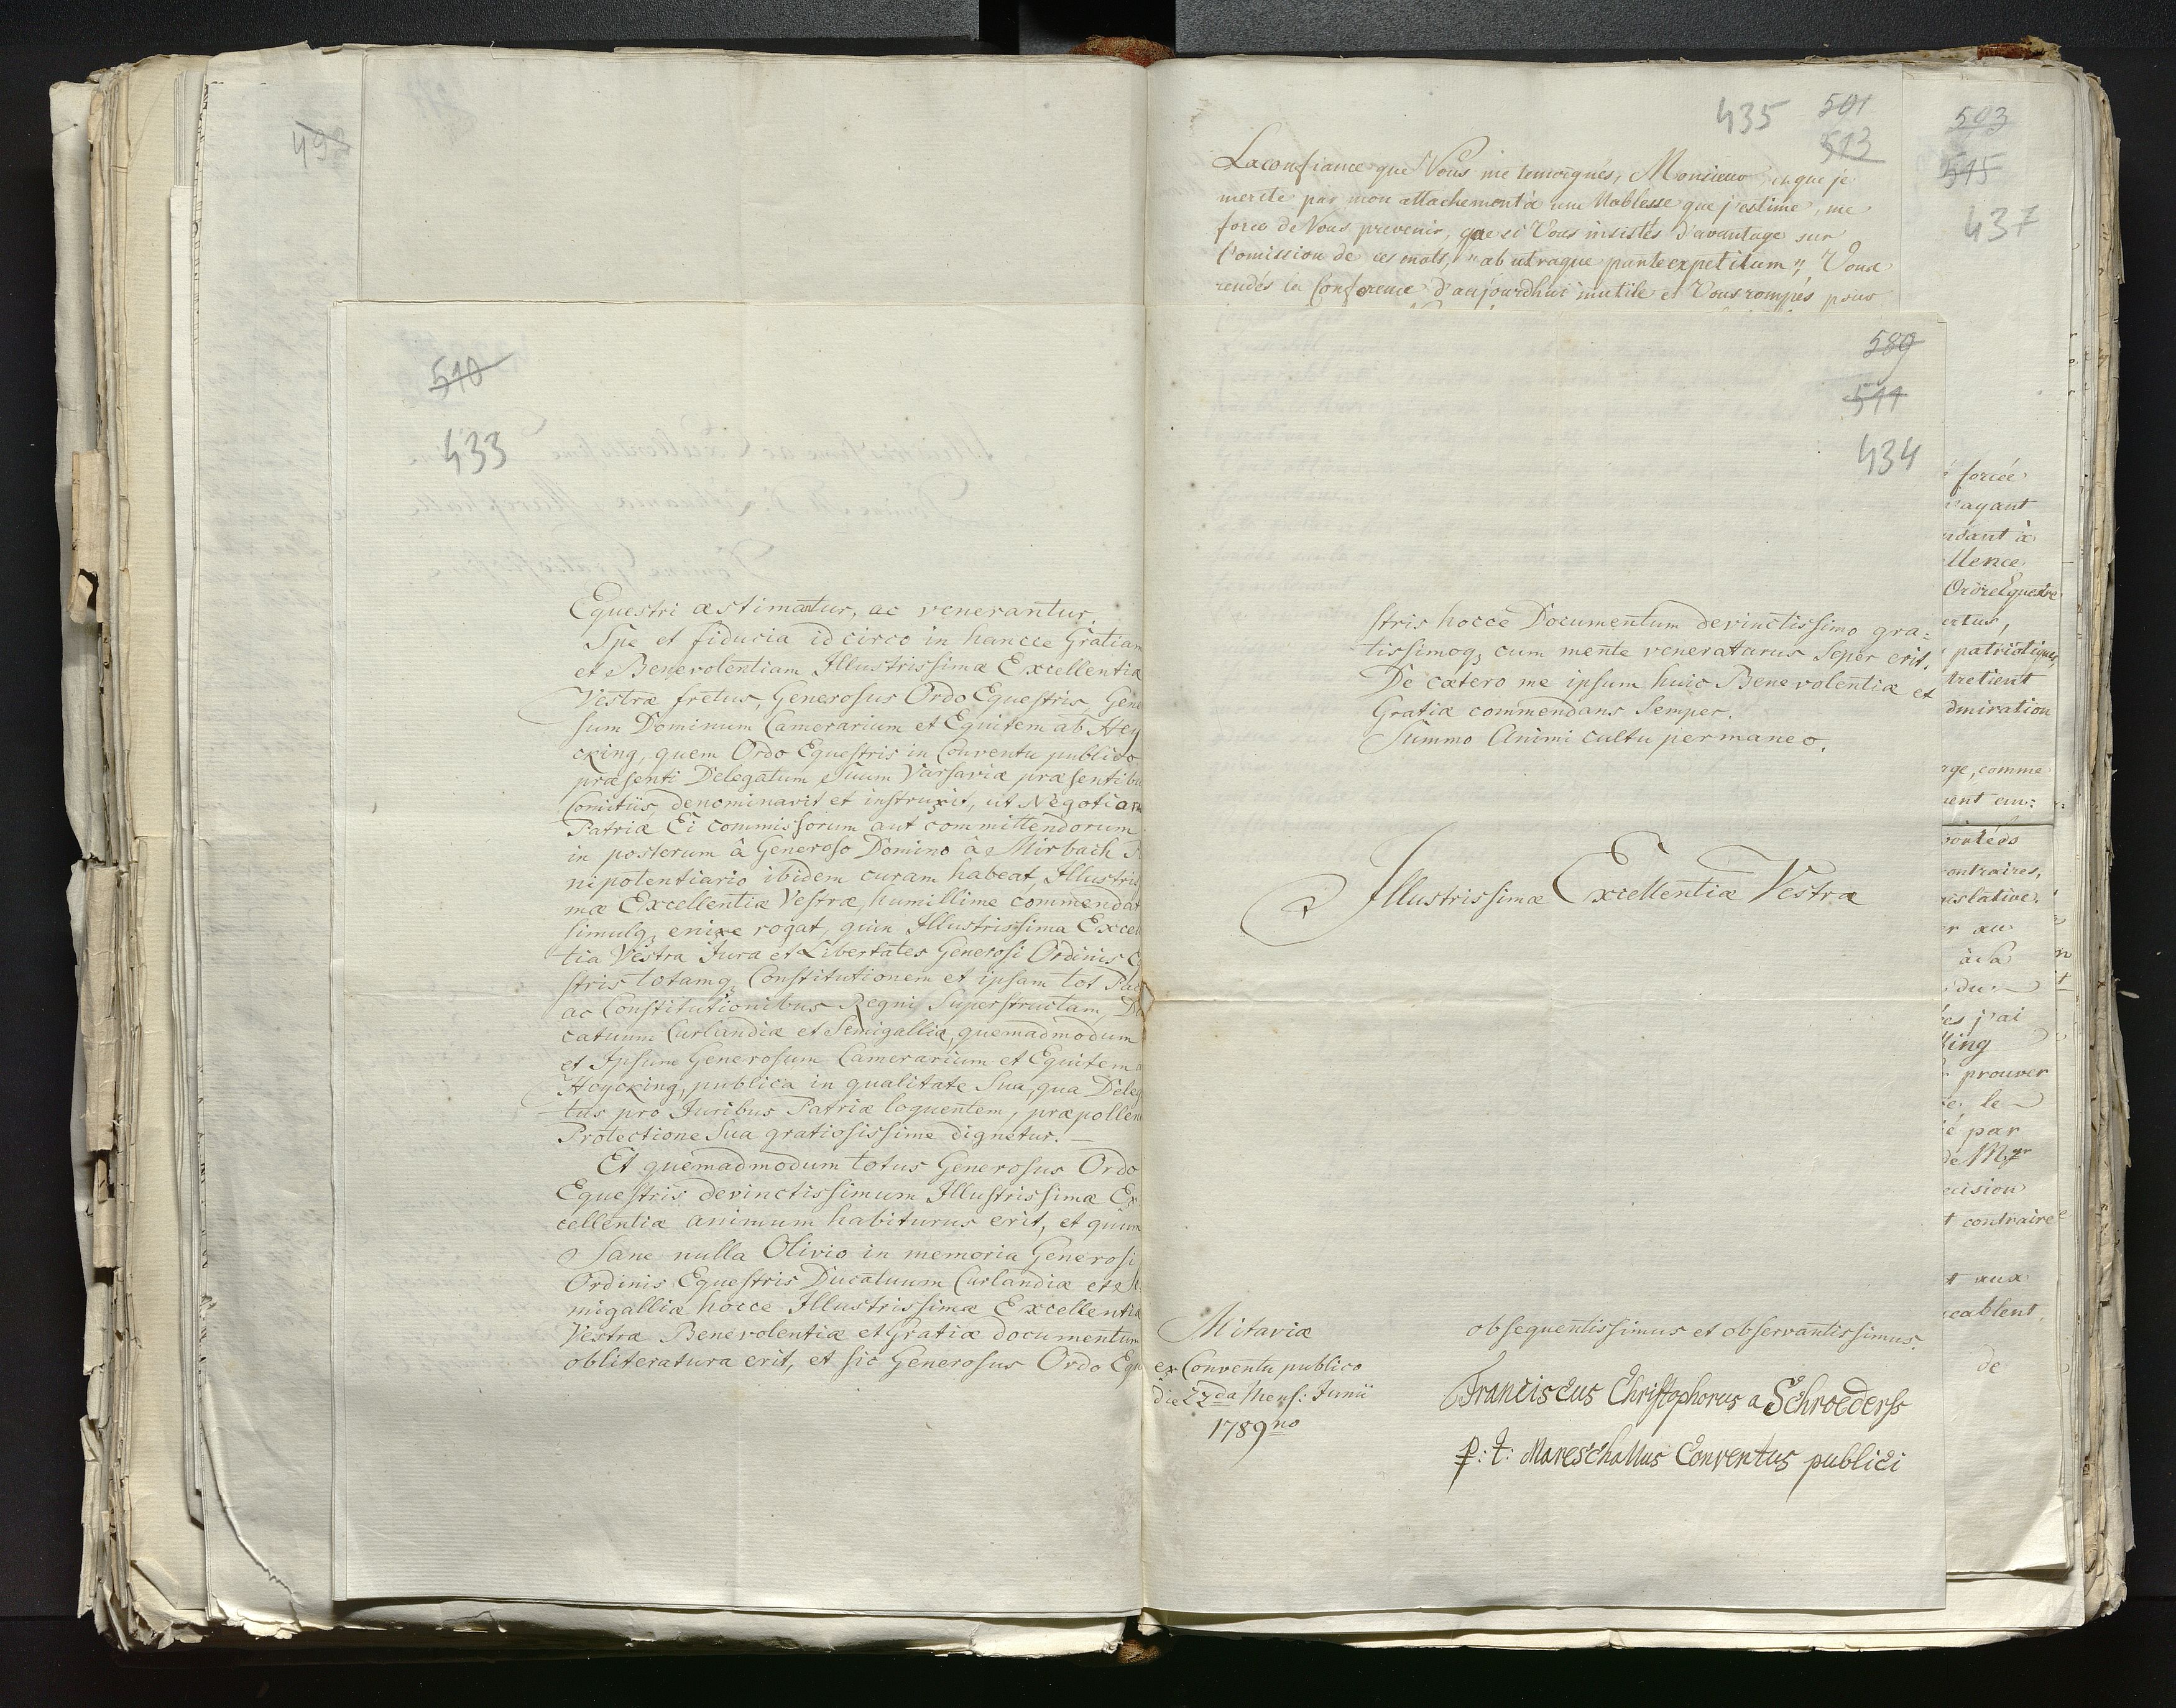 493
510
433
Equestri æstimantur, ac venerantur.
Spe et fiducia id circo in hancce Gratiam
et Benevolentiam Illustrissimæ Excellentiæ
Vestræ fretus, Generosus Ordo Equestris, Gene
sum Dominum Camerarium et Equitem ab Hey
cking, quem Ordo Equestris in Conventu publico
præsenti Delegatum suum Varsaviæ præsentibu
Comitiis, denominavit et instruxit, ut Negotiaru
Patriæ Ei commissorum aut committendorum
in posterum à Generoso Domino à Mirbach
nipotentiario ibidem curam habeat, Illustris
mæ Excellentiæ Vestræ, humillime commendat
simulq; enixe rogat, quin Illustrissima Excel
tia Vestra Jura et Libertates Generosi Ordinis
stris totamq; Constitutionem et ipsam tot Pac
ac Constitutionibus Regni Superstructam, Du
catuum Curlandiæ et Semigalliæ, quemadmodum
et Ipsum Generosum Camerarium et Equitem
Heycking, publica in qualitate Sua, qua Deleg
tus pro Juribus Patriæ loquentem, præpollen
Protectione Sua gratiosissime dignetur. —
Et quemadmodum totus Generosus Ordo
Equestris devinctissimum Illustrissimæ Ex
cellentiæ animum habiturus erit, et quum
Sane nulla Olivio in memoria Generosi
Ordinis Equestris Ducatuum Curlandiæ et Se
migalliæ hocce Illustrissimæ Excellentiæ
Vestræ Benevolentiæ et Gratiæ documentum
obliteratura erit, et sic Generosus Ordo Equ
435 501
513
La confiance que Vous me temoignés, Monsieur, et que je
merite par mon attachement à une Noblesse que j'estime, me
force de Vous prevenir, que si Vous insistés d'avantage sur
l'omission de ces mots, "ab utraque parte expetitum", Vous
rendés la Conference d'aujourdhui inutile et Vous rompés
589
511
434
stris hocce Documentum devinctissimo gra-
tissimoq; cum mente veneraturus Seper erit.
De cætero me ipsum huic Benevolentiæ et
Gratiæ commendans Semper.
Summo Animi cultu permaneo.
Illustrissimæ Excellentiæ Vestræ
Mitaviæ
ex Conventu publico
die 22da Mens: Junii
1789no
obsequentissimus et observantissimus.
Franciscus Christophorus a Schroeders
p: t: Mareschallus Conventus publici
503
515
437
forcée
ayant
ndant à
llence
Ordre Equestre
ertus,
patriotiques,
tretient
dmiration
age, comme
ent em:
ontraires,
islative
er au
à Sa
du
es j'ai
king
prouver
le
é par
de Mgr
ecision
t contraire
t aux
ccablent
de